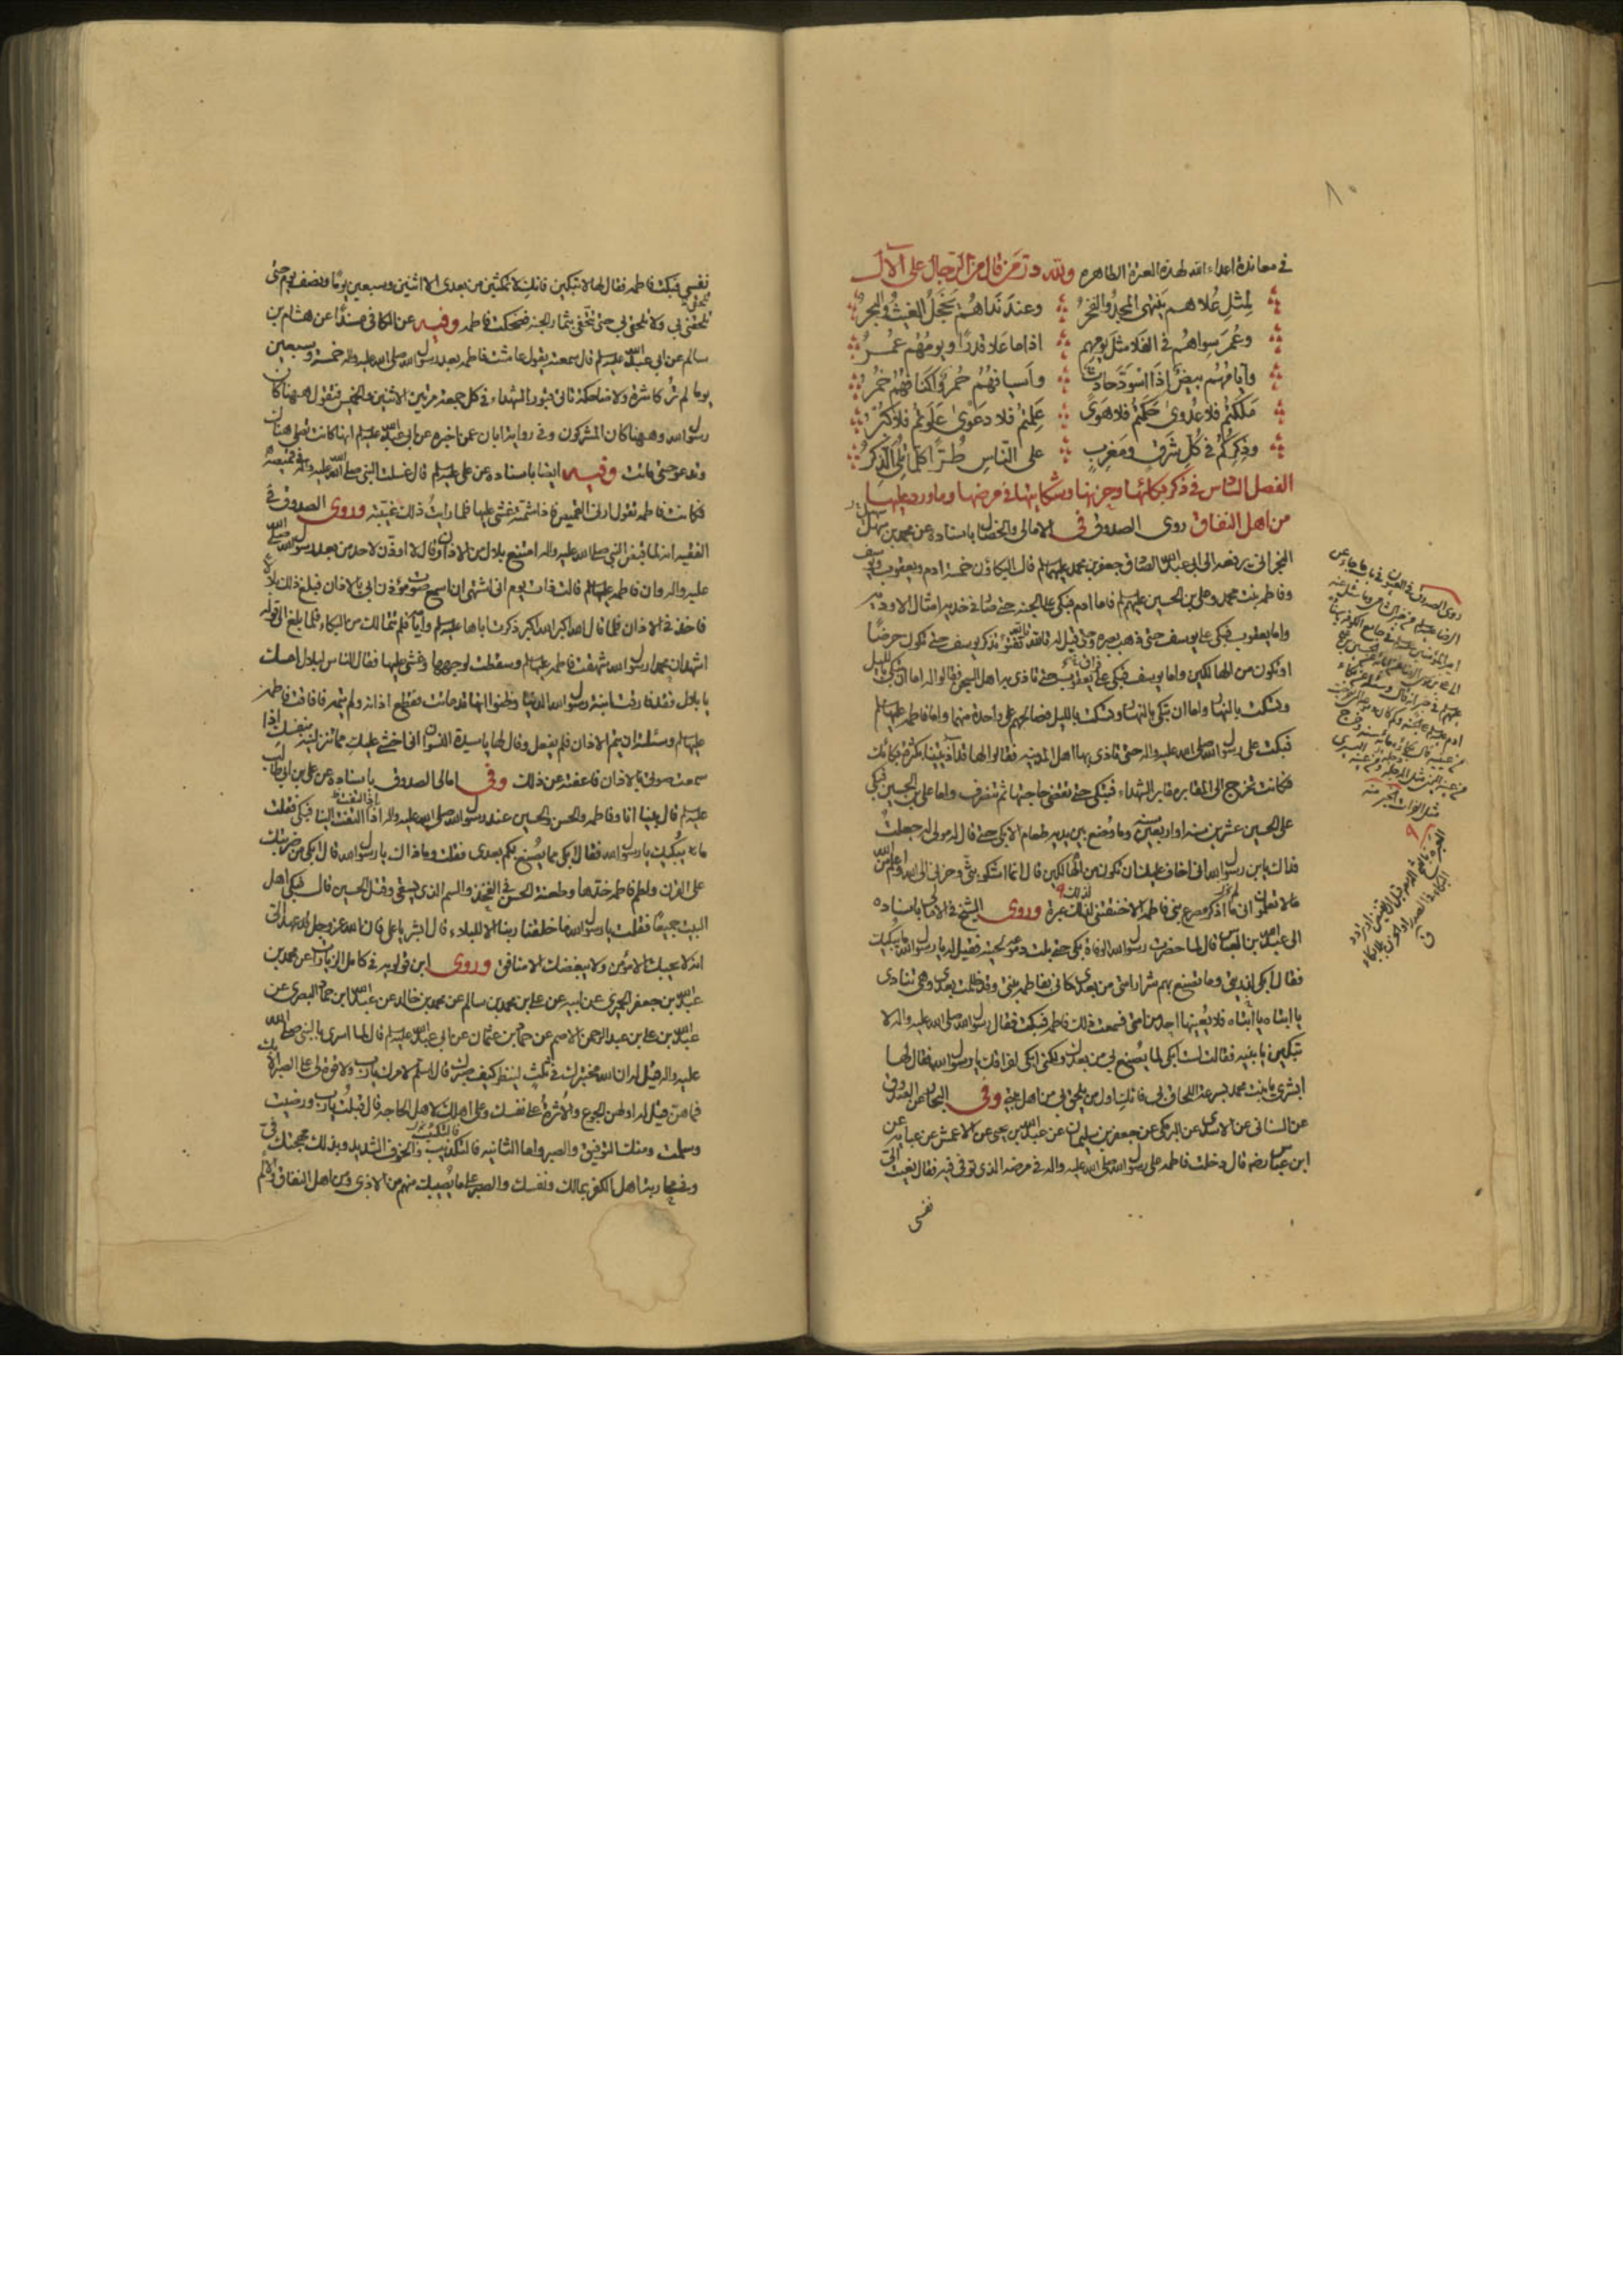 ٨٠
في معاندة اعداء الله لهذه العترة الطاهرة ولله در من قال من الرجال على الآل
لمثل علاهم ينتهى المجد والفخر وعند نداهم يخجل الغيث والبحر
وعمر سواهم في العلا مثل يومهم اذا ما علا قدرا ويومهم عمر
وايامهم بيض اذا اسود حادث واسيافهم حمر واكنافهم خضر
ملكتم فلا عدوى حكمتم فلا هوى علمتم فلا دعوى علوتم فلا كبر
وذكركم في كل شرق ومغرب على الناس طرا كلما تلى الذكر
الفصل السادس في ذكر بكائها وحزنها وشكايتها في مرضها وما ورد عليها
من اهل النفاق روى الصدوق في الامالى والخصال باسناده عن محمد بن سهل
البحرانى يرفعه الى ابى عبد الله الصادق جعفر بن محمد عليهما السلم قال البكاؤن خمسة ادم ويعقوب ويوسف
وفاطمه بنت محمد وعلى بن الحسين عليهم السلم فاما ادم فبكى على الجنه حتى صار في خديه امثال الاوديه
واما يعقوب فبكى على يوسف حتى ذهب بصره وحتى قيل له تالله تفتؤ تذكر يوسف حتى تكون حرضا
او تكون من الهالكين واما يوسف فبكى على يعقوب حتى تاذى به اهل السجن فقالوا له اما ان تبكى بالليل
وتسكت بالنهار واما ان تبكى بالنهار وتسكت بالليل فصالحهم على واحدة منهما واما فاطمه عليها السلم
فبكت على رسول الله صلى الله عليه واله حتى تاذى بها اهل المدينه فقالوا لها قد آذيتينا بكثرة بكائك
فكانت تخرج الى المقابر مقابر الشهداء فتبكى حتى تقضى حاجتها ثم تنصرف واما على بن الحسين فبكى
على الحسين عشرين سنه او اربعين سنه وما وضع بين يديه طعام الا بكى حتى قال له مولى له جعلت
فداك يابن رسول الله انى اخاف عليك ان تكون من الهالكين قال انما اشكو بثى وحزنى الى الله واعلم من الله
ما لا تعلمون انى لم اذكر مصرع بنى فاطمه الا خنقتنى لذلك عبرة وروى الشيخ في الامالى باسناده
الى عبد الله بن العباس قال لما حضرت رسول الله الوفاة بكى حتى بلت دموعه لحيته فقيل له يا رسول الله ما يبكيك
فقال ابكى لذريتى وما تصنع بهم شرار امتى من بعدى كانى بفاطمه بنتى وقد ظلمت بعدى وهى تنادى
يا ابتاه يا ابتاه فلا يعينها احد من امتى فسمعت ذلك فاطمه فبكت فقال رسول الله صلى الله عليه واله لا
تبكين يا بنيه فقالت لست ابكى لما يصنع بى من بعدك ولكنى ابكى لفراقك يا رسول الله فقال لها
ابشرى يا بنت محمد بسرعة اللحاق بى فانك اول من يلحق بى من اهل بيتى وفى البحار عن الصدوق
ابن عباس رضه قال دخلت فاطمه على رسول الله صلى الله عليه واله في مرضه الذى توفى فيه فقال نعيت الى
نفسى
نفسى فبكت فاطمه فقال لها لا تبكين فانك لا تمكثين من بعدى الا اثنين وسبعين يوما ونصف يوم حتى
تلحقى بى ولا تلحقى بى حتى تتحفى بثمار الجنه فضحكت فاطمه وفيه عن الكافى مسندا عن هشام بن
سالم عن ابى عبد الله عليه السلم قال سمعته يقول عاشت فاطمه بعد رسول الله صلى الله عليه واله خمسة وسبعين
يوما لم تر كاشرة ولا ضاحكة تاتى قبور الشهداء في كل جمعة مرتين الاثنين والخميس فتقول ههنا كان
رسول الله وههنا كان المشركون وفى رواية ابان عمن اخبره عن ابى عبد الله عليه السلم انها كانت تصلى هناك
وتدعو حتى ماتت وفيه ايضا باسناده عن على عليه السلم قال غسلت النبى صلى الله عليه واله في قميصه
فكانت فاطمه تقول ارنى القميص فاذا شمته غشى عليها فلما رايت ذلك غيبته وروى الصدوق في
الفقيه انه لما قبض النبى صلى الله عليه واله امتنع بلال من الاذان وقال لا اوذن لاحد من بعد رسول الله صلى الله
عليه واله وان فاطمه عليها السلم قالت ذات يوم انى اشتهى ان اسمع صوت مؤذن ابى بالاذان فبلغ ذلك بلالا
فاخذ في الاذان فلما قال الله اكبر الله اكبر ذكرت اباها عليه السلم وايامه فلم تتمالك من البكاء فلما بلغ الى قوله
اشهد ان محمدا رسول الله شهقت فاطمه عليها السلم وسقطت لوجهها وغشى عليها فقال الناس لبلال امسك
يا بلال فقد فارقت ابنة رسول الله الدنيا وظنوا انها قد ماتت فقطع اذانه ولم يتمه فافاقت فاطمه
عليها السلم وسئلته ان يتم الاذان فلم يفعل وقال لها يا سيدة النسوان انى اخشى عليك مما تنزلينه بنفسك اذا
سمعت صوتى بالاذان فاعفته عن ذلك وفى امالى الصدوق باسناده عن على بن ابى طالب
عليه السلم قال بينا انا وفاطمه والحسن والحسين عند رسول الله صلى الله عليه واله اذا التفت الينا فبكى فقلت
ما يبكيك يا رسول الله فقال ابكى مما يصنع بكم بعدى فقلت وما ذاك يا رسول الله قال ابكى من ضربتك
على القرن ولطم فاطمه خدها وطعنة الحسن في الفخذ والسم الذى يسقى وقتل الحسين قال فبكى اهل
البيت جميعا فقلت يا رسول الله ما خلقنا ربنا الا للبلاء قال ابشر يا على فان الله عز وجل قد عهد الى
انه لا يحبك الا مؤمن ولا يبغضك الا منافق وروى ابن قولويه في كامل الزيارات عن محمد بن
عبد الله بن جعفر الحميرى عن ابيه عن على بن محمد بن سالم عن محمد بن خالد عن عبد الله ابن حماد البصرى عن
عبد الله بن عبد الرحمن الاصم عن حماد بن عثمان عن ابى عبد الله عليه السلم قال لما اسرى بالنبى صلى الله
عليه واله قيل له ان الله مختبرك في ثلث لينظر كيف صبرك قال اسلم لامرك يا رب ولا قوة لى على الصبر الا بك
فما هن قيل له اولهن الجوع والاثرة على نفسك وعلى اهلك لاهل الحاجه قال قبلت يا رب ورضيت
وسلمت ومنك التوفيق والصبر واما الثانيه فالتكذيب والخوف الشديد وبذلك مهجتك في
ومحاربة اهل الكفر بمالك ونفسك والصبر على ما يصيبك منهم من الاذى ومن اهل النفاق والالم